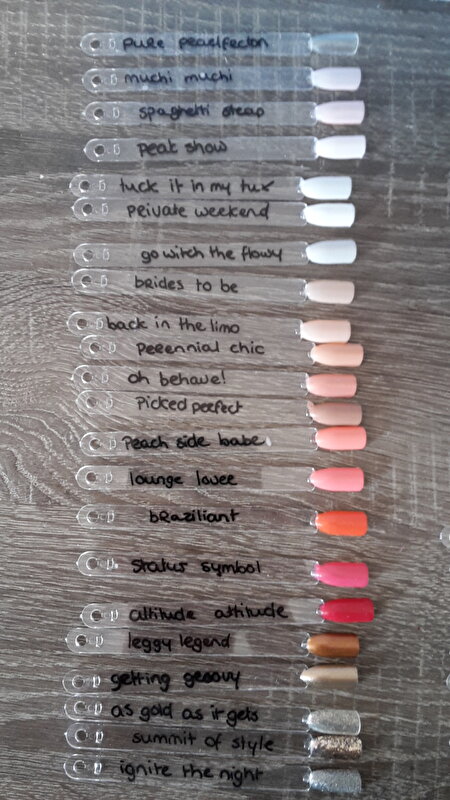 pure pearlfection
muchi muchi
spaghetti strap
peak show
tuck it in my tux
private weekend
go witch the flowy
brides to be
back in the limo
perennial chic
oh behave!
Picked perfect
Peach side babe
lounge lover
braziliant
status symbol
attitude attitude
leggy legend
getting groovy
as gold as it gets
summit of style
ignite the night